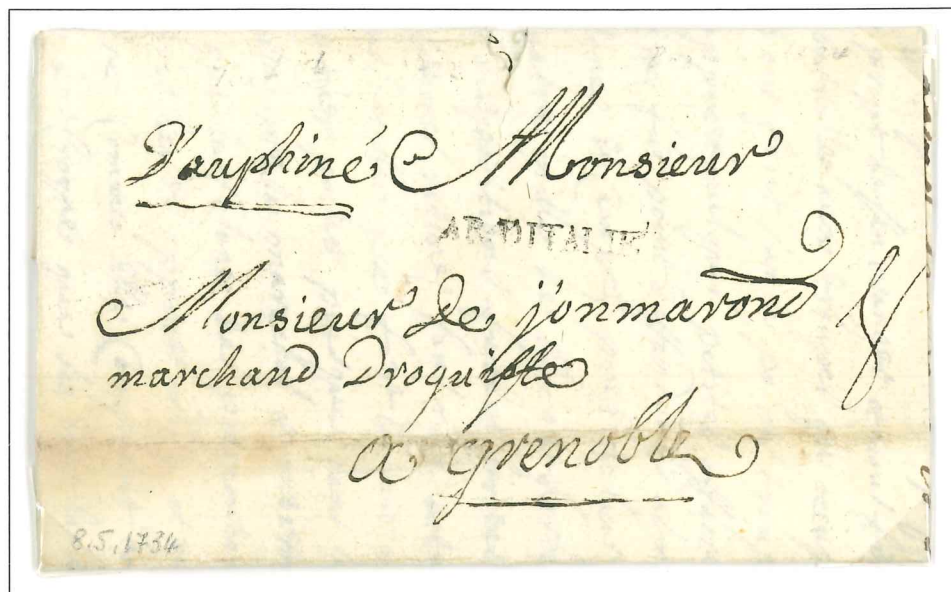 Dauphiné Monsieur
AR. D'ITALIE
Monsieur de jonmarond
marchand Droquiste
a grenoble
8
8.5.1734